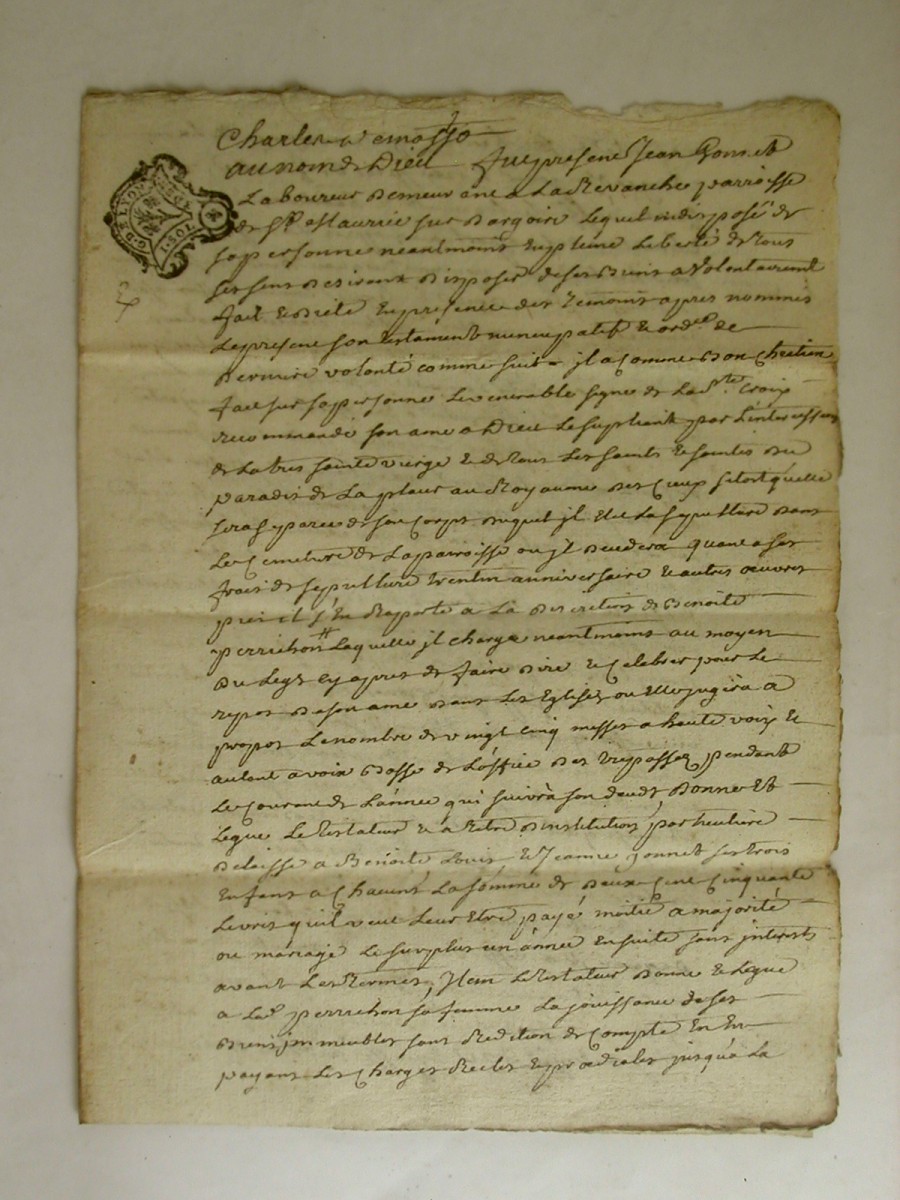 G. DE LYON
1 SOL
au nom de Dieu fut present Jean Gonnet
Laboureur demeurant a La Revanche parroisse
de St Maurice sur dargoire Lequel indisposé de
sa personne neantmoins en pleine Liberté de tous
ses sens desirant disposer de ses biens a volontairemt
fait et dicté en presence des temoins apres nommes
Le present son testament nuncupatif et ordre de
derniere volonté comme suit jl a comme bon chretien
fait sur sa personne Le venerable signe de La Ste Croix
recommandé son ame a Dieu Le supliant par L'intercession
de La tres sainte vierge et de tous Les saints et saintes du
paradis de La placer au Royaume des cieux sitost quelle
sera separée de son corps duquel jl elit La sepulture dans
Le Cemetiere de La parroisse ou jl decedera quant a ses
frais de sepulture trentin anniversaire et autres œuvres
pies il s'En Raporte a La discretion de Benoite
perrichon Laquelle jl charge neantmoins au moyen
du Legs cy apres de faire dire et Celebrer pour Le
repos de son ame dans Les Eglises ou Elle jugera a
propos Le nombre de vingt cinq messes a haute voix et
autant a voix basse de L'office des trepassez pendant
Le Courant de L'année qui suivra son decds Donne Et
Legue Le testateur et a titre d'institution particuliere
delaisse a Benoite Louis et Jeanne gonnet ses trois
Enfans a Chacuns La somme de deux Cent Cinquante
Livres qu'il veut Leur Etre payé moitié a majorité
ou mariage Le surplus un année Ensuite sans jnterests
avant Les termes, Jtem Le testateur donne et Legue
a Lad. perrichon sa femme La jouissance de ses
biens jmmeubles sans Reddition de Compte En En
payant Les Charges Reeles et prediales jusqu'a La